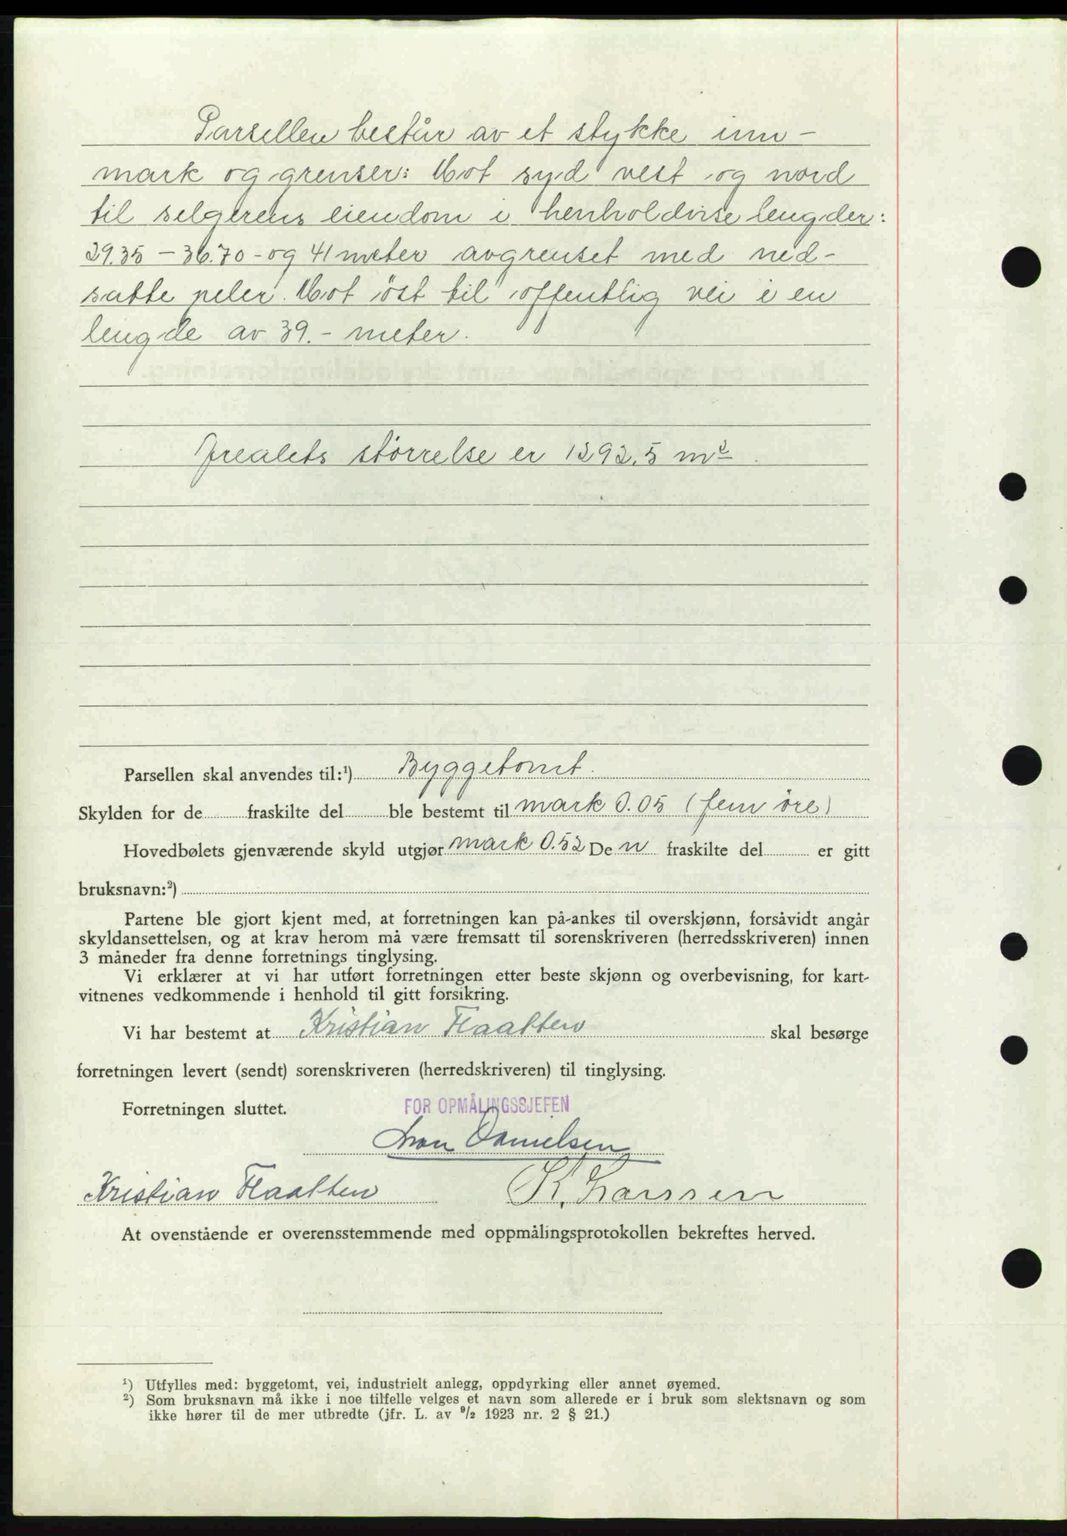 Parsellen består av et stykke inn-
mark og grenser: Mot syd vest og nord
til selgerens eiendom i henholdvise lengder:
29.35 – 36.70 - og 41 meter avgrenset med ned-
satte peler. Mot øst til offentlig vei i en
lengde av 39.- meter.
Arealets størrelse er 1292,5 m²
Parsellen skal anvendes til:¹) Byggetomt.
Skylden for de fraskilte del ble bestemt til mark 0.05 (fem øre)
Hovedbølets gjenværende skyld utgjør mark 0.52 Den fraskilte del er gitt
bruksnavn:²)
Partene ble gjort kjent med, at forretningen kan på-ankes til overskjønn, forsåvidt angår
skyldansettelsen, og at krav herom må være fremsatt til sorenskriveren (herredsskriveren) innen
3 måneder fra denne forretnings tinglysing.
Vi erklærer at vi har utført forretningen etter beste skjønn og overbevisning, for kart-
vitnenes vedkommende i henhold til gitt forsikring.
Vi har bestemt at Kristian Flaatten skal besørge
forretningen levert (sendt) sorenskriveren (herredskriveren) til tinglysing.
Forretningen sluttet. FOR OPMÅLINGSSJEFEN
Danielsen
Kristian Flaatten K. Larssen
At ovenstående er overensstemmende med oppmålingsprotokollen bekreftes herved.
¹) Utfylles med: byggetomt, vei, industrielt anlegg, oppdyrking eller annet øyemed.
²) Som bruksnavn må ikke i noe tilfelle velges et navn som allerede er i bruk som slektsnavn og som
ikke hører til de mer utbredte (jfr. L. av ⁹/₂ 1923 nr. 2 § 21.)